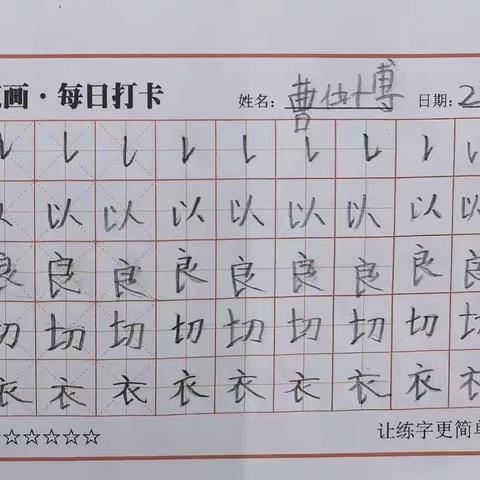 画·每日打卡 姓名: 曹 博 日期: 2
以 以 以 以 以 以 以 以 以
良 良 良 良 良 良 良 良 良
切 切 切 切 切 切 切 切 切
衣 衣 衣 衣 衣 衣 衣 衣 衣
☆☆☆☆☆ 让练字更简单